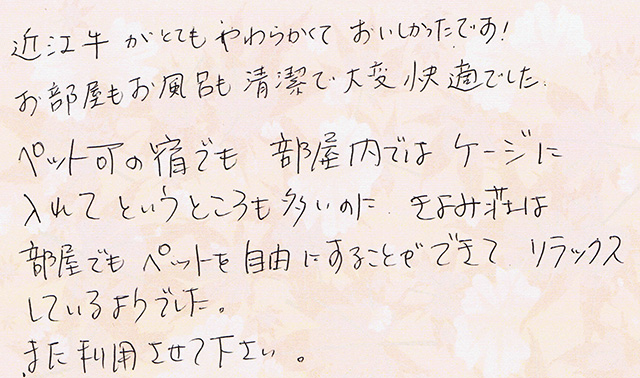 近江牛 がとても やわらかくて おいしかったです!
お部屋もお風呂も 清潔で大変 快適でした.
ペット可の宿でも 部屋内では ケージに
入れて というところも多いのに. きよみ荘は
部屋でも ペットを自由にすることができて リラックス
しているようでした。
また利用させて下さい。